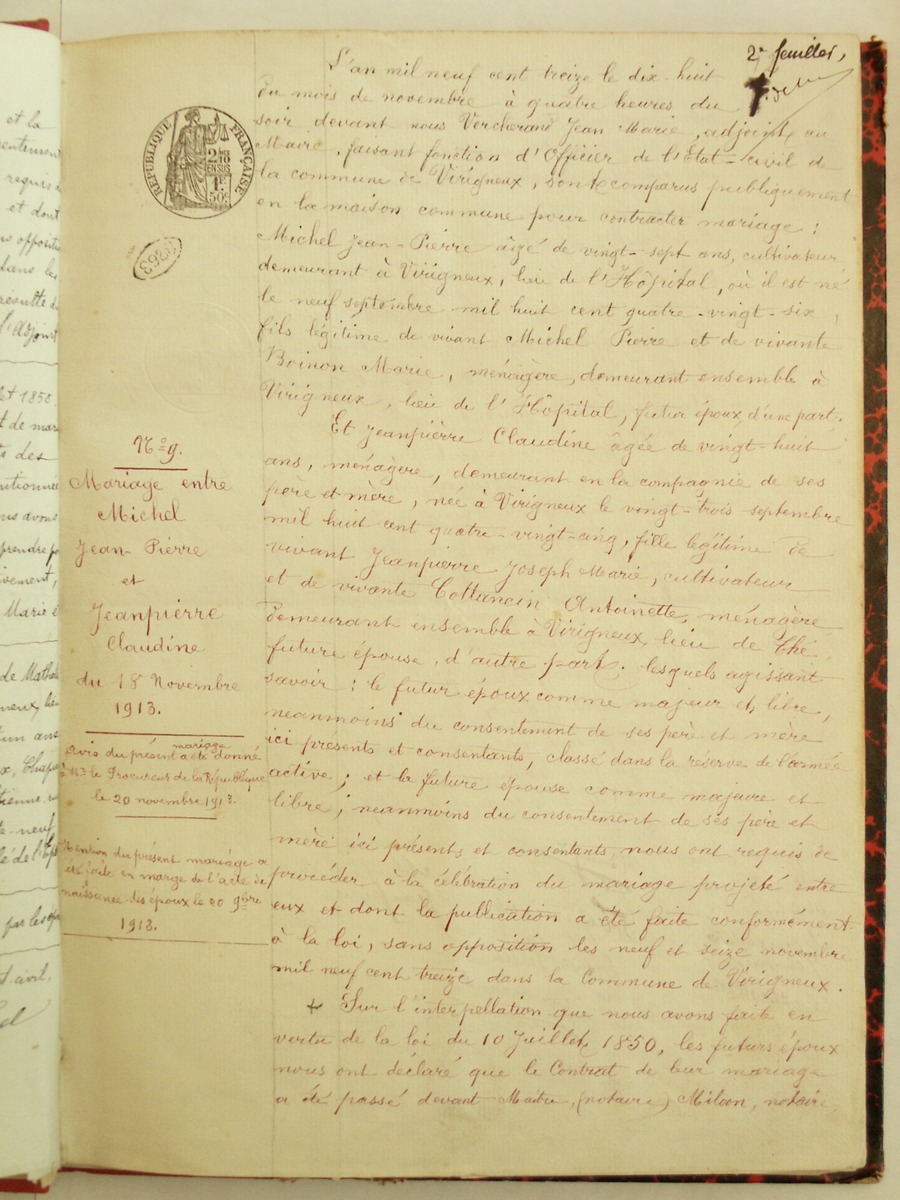 2e feuillet,
L'an mil neuf cent treize le dix-huit
du mois de novembre à quatre heures du
soir devant nous Vercherand Jean Marie, adjoint au
Maire, faisant fonction d'Officier de l'Etat-civil de
la commune de Virigneux, sont comparus publiquement
en la maison commune pour contracter mariage :
Michel Jean-Pierre âgé de vingt-sept ans, cultivateur
demeurant à Virigneux, lieu de l'Hôpital, où il est né
le neuf septembre mil huit cent quatre-vingt-six,
fils légitime de vivant Michel Pierre et de vivante
Boinon Marie, ménagère, demeurant ensemble à
Virigneux, lieu de l'Hôpital, futur époux, d'une part.
Et Jeanpierre Claudine âgée de vingt-huit
ans, ménagère, demeurant en la compagnie de ses
père et mère, née à Virigneux le vingt-trois septembre
mil huit cent quatre-vingt-cinq, fille légitime de
vivant Jeanpierre Joseph Marie, cultivateur
et de vivante Cottancin Antoinette, ménagère
demeurant ensemble à Virigneux, lieu de
future épouse, d'autre part ; lesquels agissant
savoir : le futur époux comme majeur et libre,
neanmoins du consentement de ses père et mère
ici présents et consentants, classé dans la réserve de l'armée
active ; et la future épouse comme majeure et
libre, neanmoins du consentement de ses père et
mère ici présents et consentants, nous ont requis de
procéder à la célébration du mariage projeté entre
eux et dont la publication a été faite conformément
à la loi, sans opposition les neuf et seize novembre
mil neuf cent treize dans la Commune de Virigneux.
+ Sur l'interpellation que nous avons faite en
vertu de la loi du 10 Juillet 1850, les futurs époux
nous ont déclaré que le Contrat de leur mariage
a été passé devant Maître (notaire) notaire
RÉPUBLIQUE FRANÇAISE
2/10
EN SUS
1F
50c
3263
No 9.
Mariage entre
Michel
Jean-Pierre
et
Jeanpierre
Claudine
du 18 Novembre
1913.
mariage
Avis du présent a été donné
à Mr le Procureur de la République
le 20 novembre 1913.
Mention du présent mariage a
été faite en marge de l'acte de
naissance des époux le 20 9bre
1913.
et la
requis
et dont
opposition
dans les
résulte
l'adjoint
1850
de
des
avons
prendre
Marie
de
ans
neuf
de l'
par les
civil.